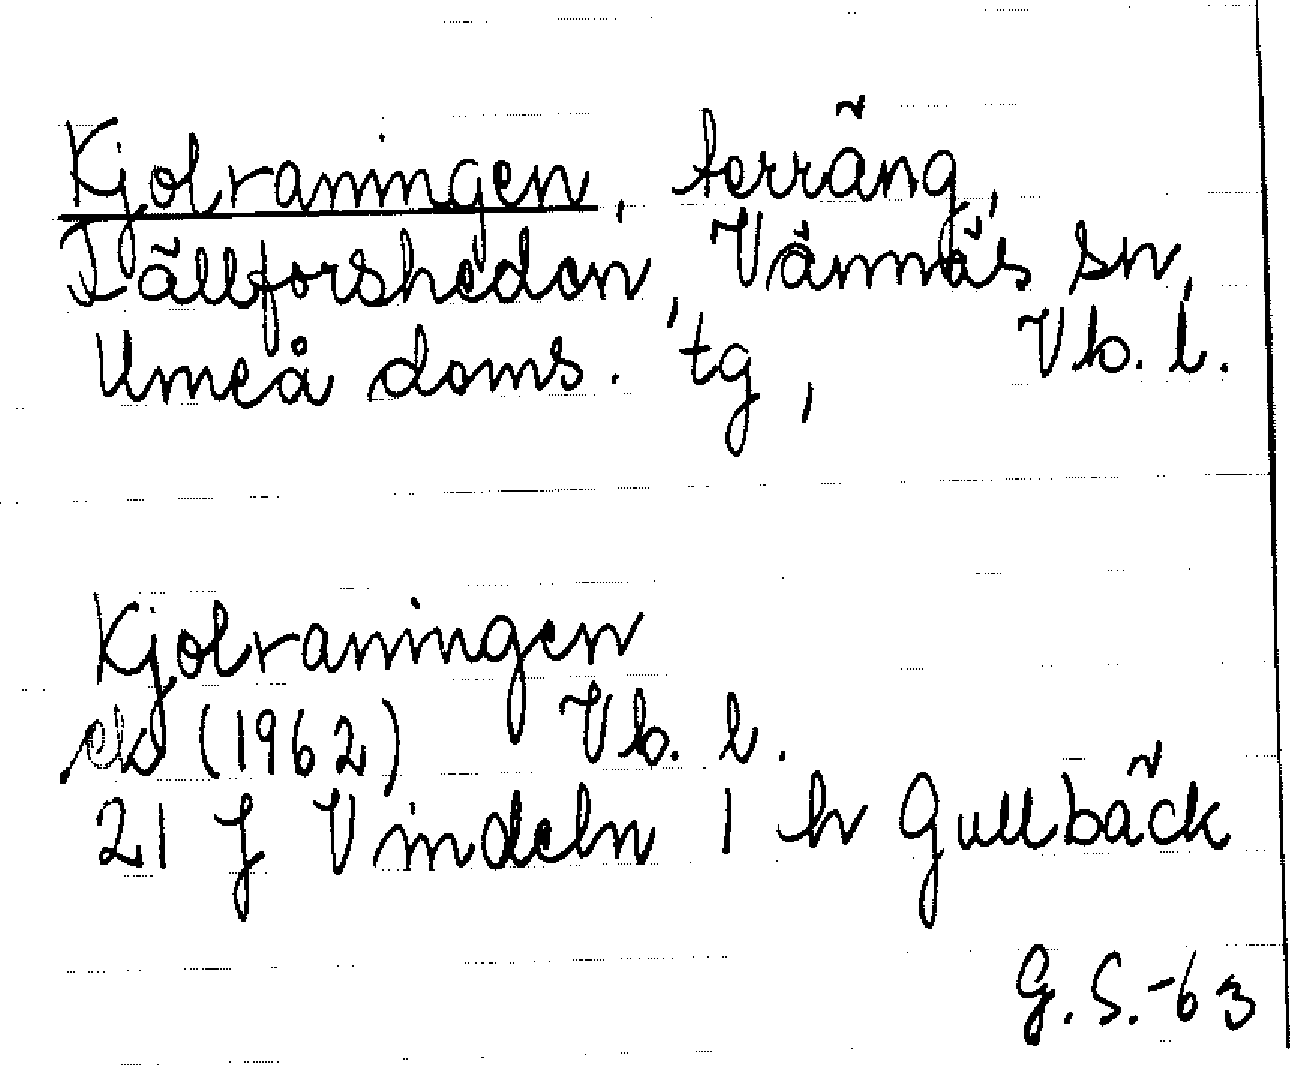 Kjolraningen, terräng,
Tällforsheden, Vännäs sn,
Umeå doms. tg, Vb. l.
Kjolraningen
ek (1962) Vb. l.
21 J Vindeln 1 h Gullbäck
G.S.-63